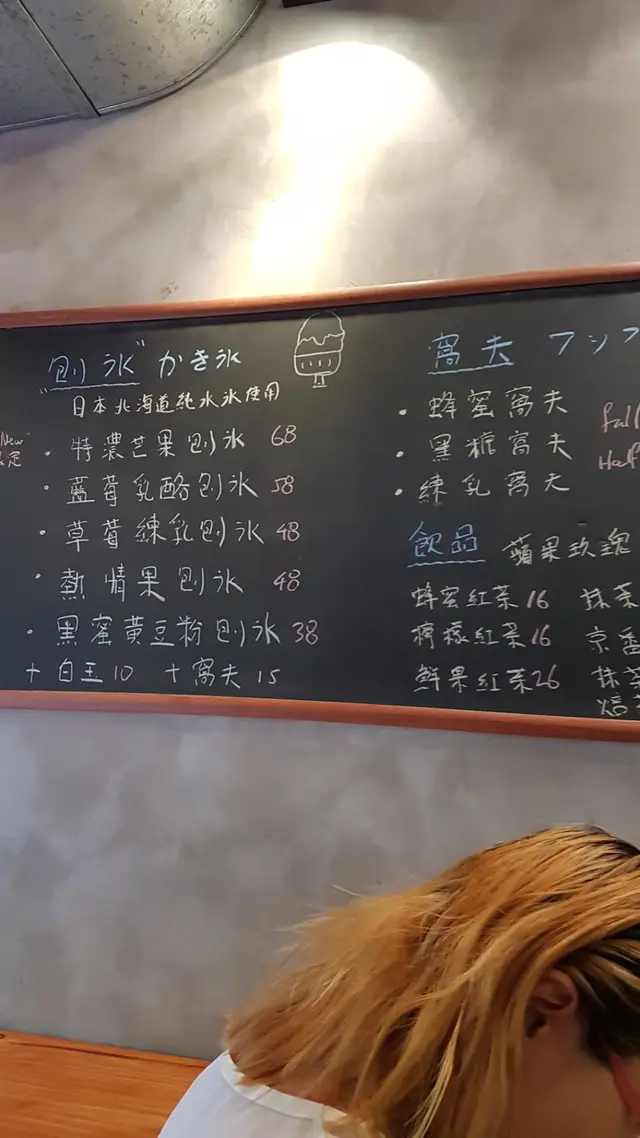 "刨氷" かき氷
日本北海道純水氷使用
New
• 特濃芒果刨氷 68
• 藍莓乳酪刨氷 58
• 草莓練乳刨氷 48
• 熱情果刨氷 48
• 黑蜜黃豆粉刨氷 38
+ 白玉 10 + 窩夫 15
窩夫 ワッフ
• 蜂蜜窩夫
• 黑糖窩夫
• 練乳窩夫
Full
Half
飲品 蘋果玫瑰
蜂蜜紅茶 16 抹茶
檸檬紅茶 16 京番
鮮果紅茶 26 抹茶
焙